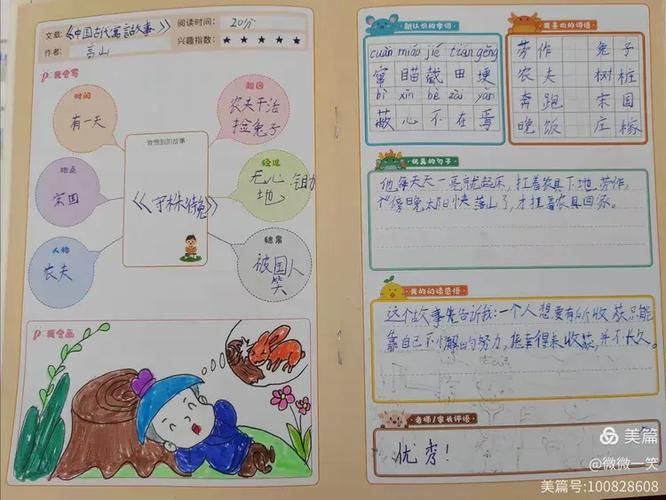 文章:《中国古代寓言故事》 阅读时间: 20分
作者: 高山 兴趣指数: ★ ★ ★ ★ ★
我会写
时间
有一天
地点
宋国
人物
农夫
我想到的故事
《守株待兔》
起因
农夫干活
捡兔子
经过
无心
地
结果
被国人
笑
我会画
新认识的字词
cuàn miáo jié tián gěng
窜 瞄 截 田 埂
bì xīn bù zài yān
蔽 心 不 在 焉
我喜欢的词语
劳作 兔子
农夫 树桩
奔跑 宋国
晚饭 庄稼
优美的句子
他每天天一亮就起床,扛着农具下地劳作,
傍晚太阳快落山了,才扛着农具回家。
我的阅读感悟
这个故事告诉我:一个人想要有所收获只能
靠自己不懈的努力,
得来收获,并不长久。
老师/家长评语
优秀!
美篇
@微微一笑
美篇号:100828608